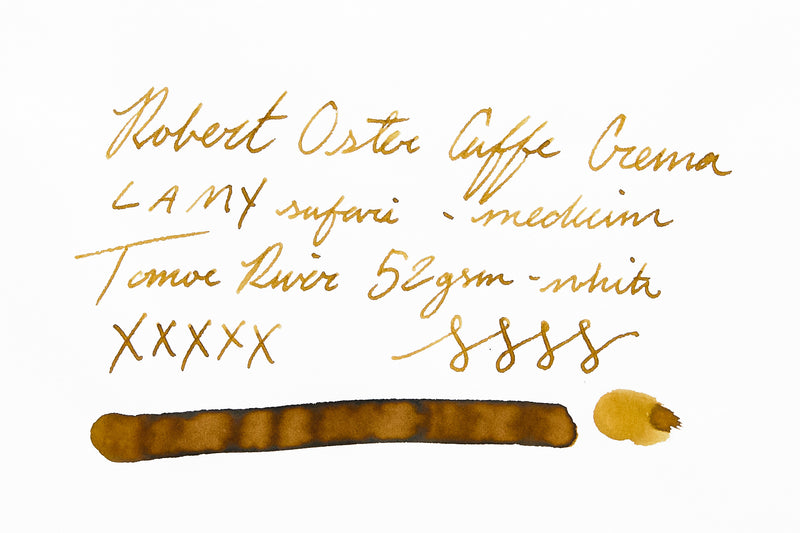 Robert Oster Caffe Crema
LAMY safari - medium
Tomoe River 52gsm - white
XXXXX SSSS